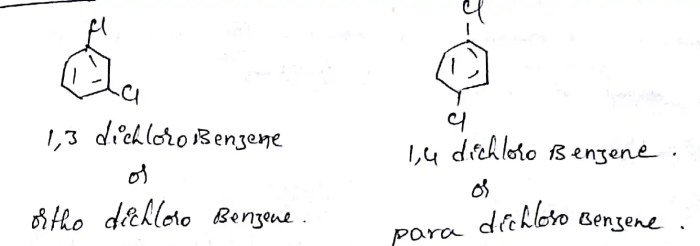 Cl
Cl
1,3 dichloro Benzene
or
ortho dichloro Benzene.
Cl
Cl
1,4 dichloro Benzene.
or
para dichloro Benzene.